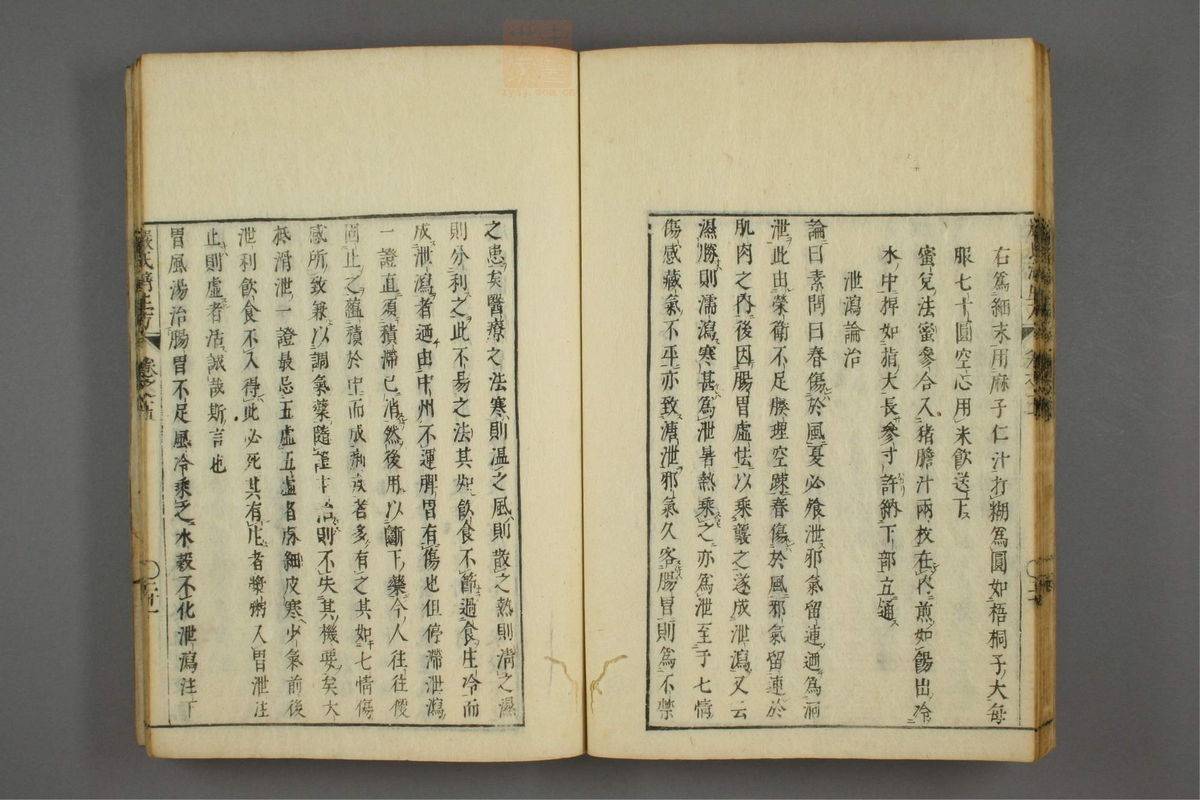 右爲細末用麻子仁汁打糊爲圓如梧桐子大每
服七十圓空心用米飲送下
蜜兌法蜜參合入猪膽汁兩枚在内煎如餳出冷
水中捍如指大長參寸許納下部立通
泄瀉論治
論曰素問曰春傷於風夏必飱泄邪氣留連迺爲洞
泄此由榮衛不足腠理空踈春傷於風邪氣留連於
肌肉之内後因腸胃虚怯以乘襲之遂成泄瀉又云
濕勝則濡瀉寒甚爲泄暑熱乘之亦爲泄至于七情
傷感藏氣不平亦致溏泄邪氣久客腸胃則爲不禁
之患矣醫療之法寒則温之風則散之熱則清之濕
則分利之此不易之法其如飲食不節過食生冷而
成泄瀉者迺由中州不運脾胃有傷也但停滯泄瀉
一證直須積滯已消然後用以斷下藥今人往往便
固止之蘊積於中而成痢疾者多有之其如七情傷
感所致兼以調氣藥隨證治則不失其機要矣大
抵滑泄一證最忌五虚五虚者脉細皮寒少氣前後
泄利飲食不入得此必死其有生者漿粥入胃泄注
止則虚者活誠哉斯言也
胃風湯治腸胃不足風冷乘之水穀不化泄瀉注下
嚴氏濟生方
卷之五